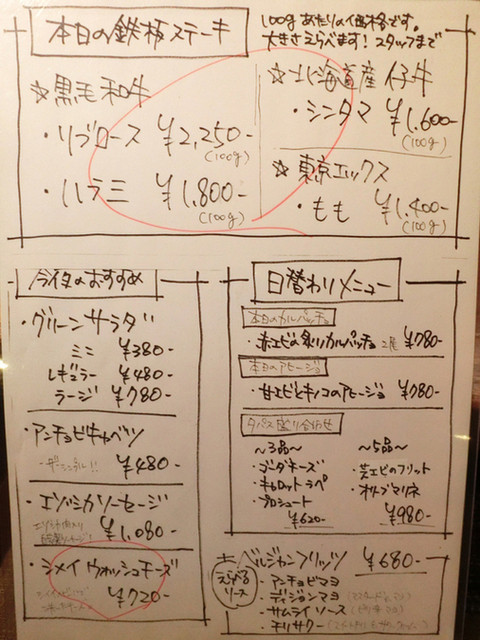 本日の鉄板ステーキ
100gあたりの価格です。
大きさえらべます！スタッフまで
☆黒毛和牛
・リブロース ¥2,250-
(100g)
・ハラミ ¥1,800-
(100g)
☆北海道産 仔牛
・シンタマ ¥1,600-
(100g)
☆東京エックス
・もも ¥1,400-
(100g)
今夜のおすすめ
・グリーンサラダ
ミニ ¥380-
レギュラー ¥480-
ラージ ¥780-
・アンチョビキャベツ
¥480-
・エゾシカソーセージ
¥1,080-
・シメイ ウォッシュチーズ
¥720-
日替わりメニュー
本日のカルパッチョ
・赤エビの炙りカルパッチョ 2尾 ¥780-
本日のアヒージョ
・甘エビとキノコのアヒージョ ¥780-
タパス盛り合わせ
〜3品〜
・ゴーダチーズ
・キャロットラペ
・プロシュート
¥620-
〜5品〜
・芝エビのフリット
・オリーブマリネ
¥980-
ベルジャンフリッツ ¥680-
えらべるソース
・アンチョビマヨ
・ディジョンマヨ
・サムライソース
・チリサワー